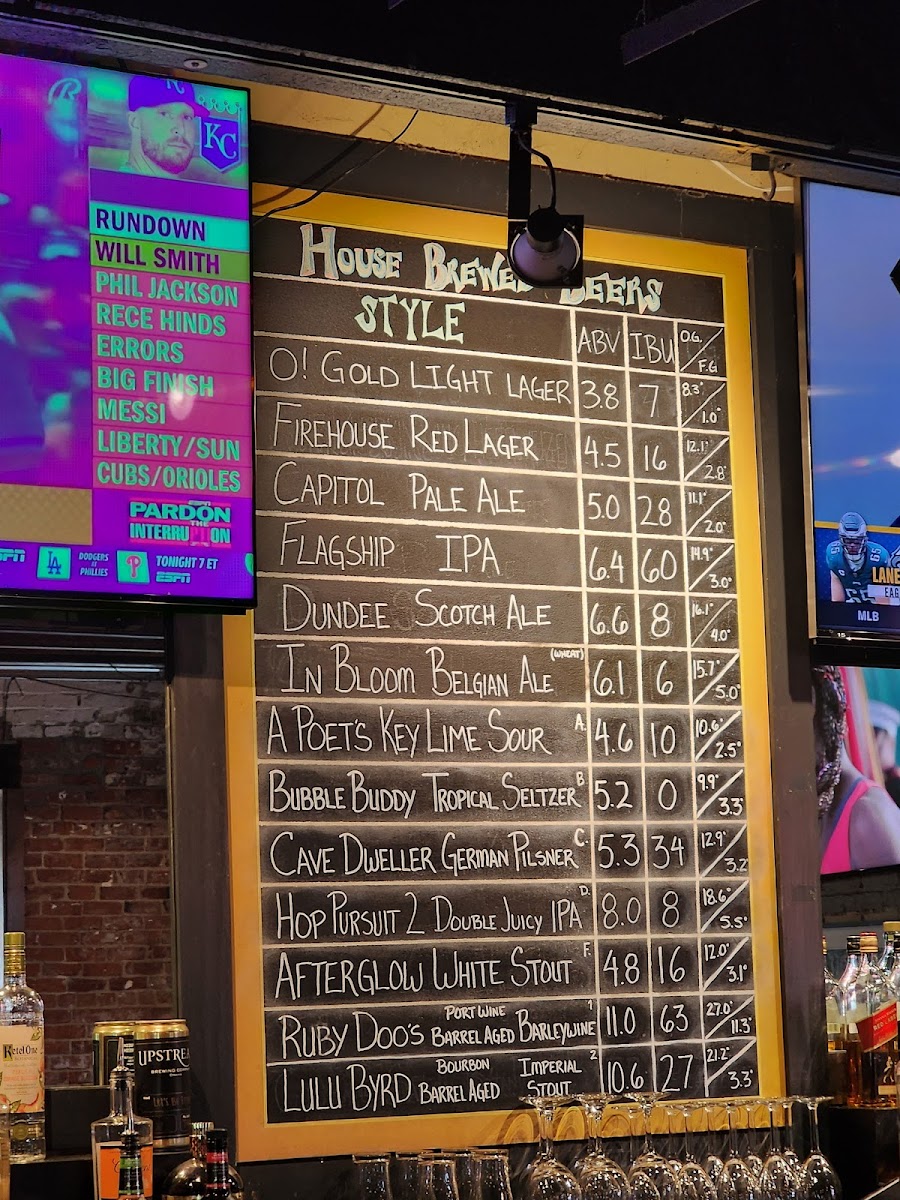 R
KC
KC
RUNDOWN
WILL SMITH
PHIL JACKSON
RECE HINDS
ERRORS
BIG FINISH
MESSI
LIBERTY/SUN
CUBS/ORIOLES
ESPN
PARDON
THE
INTERRUPTION
ESPN
LA
DODGERS
VS
PHILLIES
P
TONIGHT 7 ET
ESPN
HOUSE BREWED BEERS
STYLE ABV IBU O.G. / F.G
O! GOLD LIGHT LAGER 3.8 7 8.3° / 1.0°
FIREHOUSE RED LAGER 4.5 16 12.1° / 2.8°
CAPITOL PALE ALE 5.0 28 11.1° / 2.0°
FLAGSHIP IPA 6.4 60 14.9° / 3.0°
DUNDEE SCOTCH ALE 6.6 8 16.1° / 4.0°
IN BLOOM BELGIAN ALE (WHEAT) 6.1 6 15.7° / 5.0°
A POET'S KEY LIME SOUR A. 4.6 10 10.6° / 2.5°
BUBBLE BUDDY TROPICAL SELTZER B 5.2 0 9.9° / 3.3°
CAVE DWELLER GERMAN PILSNER C. 5.3 34 12.9° / 3.2
HOP PURSUIT 2 DOUBLE JUICY IPA D. 8.0 8 18.6° / 5.5°
AFTERGLOW WHITE STOUT F. 4.8 16 12.0° / 3.1°
RUBY DOO'S PORT WINE BARREL AGED BARLEYWINE 1 11.0 63 27.0° / 11.3°
LULU BYRD BOURBON BARREL AGED IMPERIAL STOUT 2 10.6 27 21.2° / 3.3°
65
LANE
EAG
MLB
Ketel One
UPSTREA
BREWING
RED